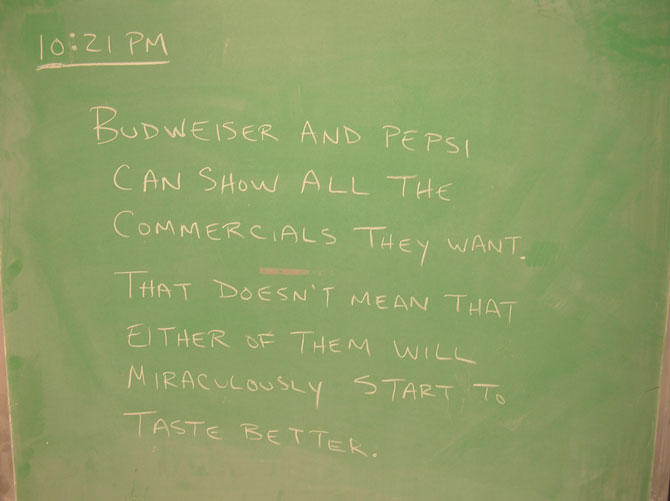 10:21 PM
BUDWEISER AND PEPSI
CAN SHOW ALL THE
COMMERCIALS THEY WANT.
THAT DOESN'T MEAN THAT
EITHER OF THEM WILL
MIRACULOUSLY START TO
TASTE BETTER.